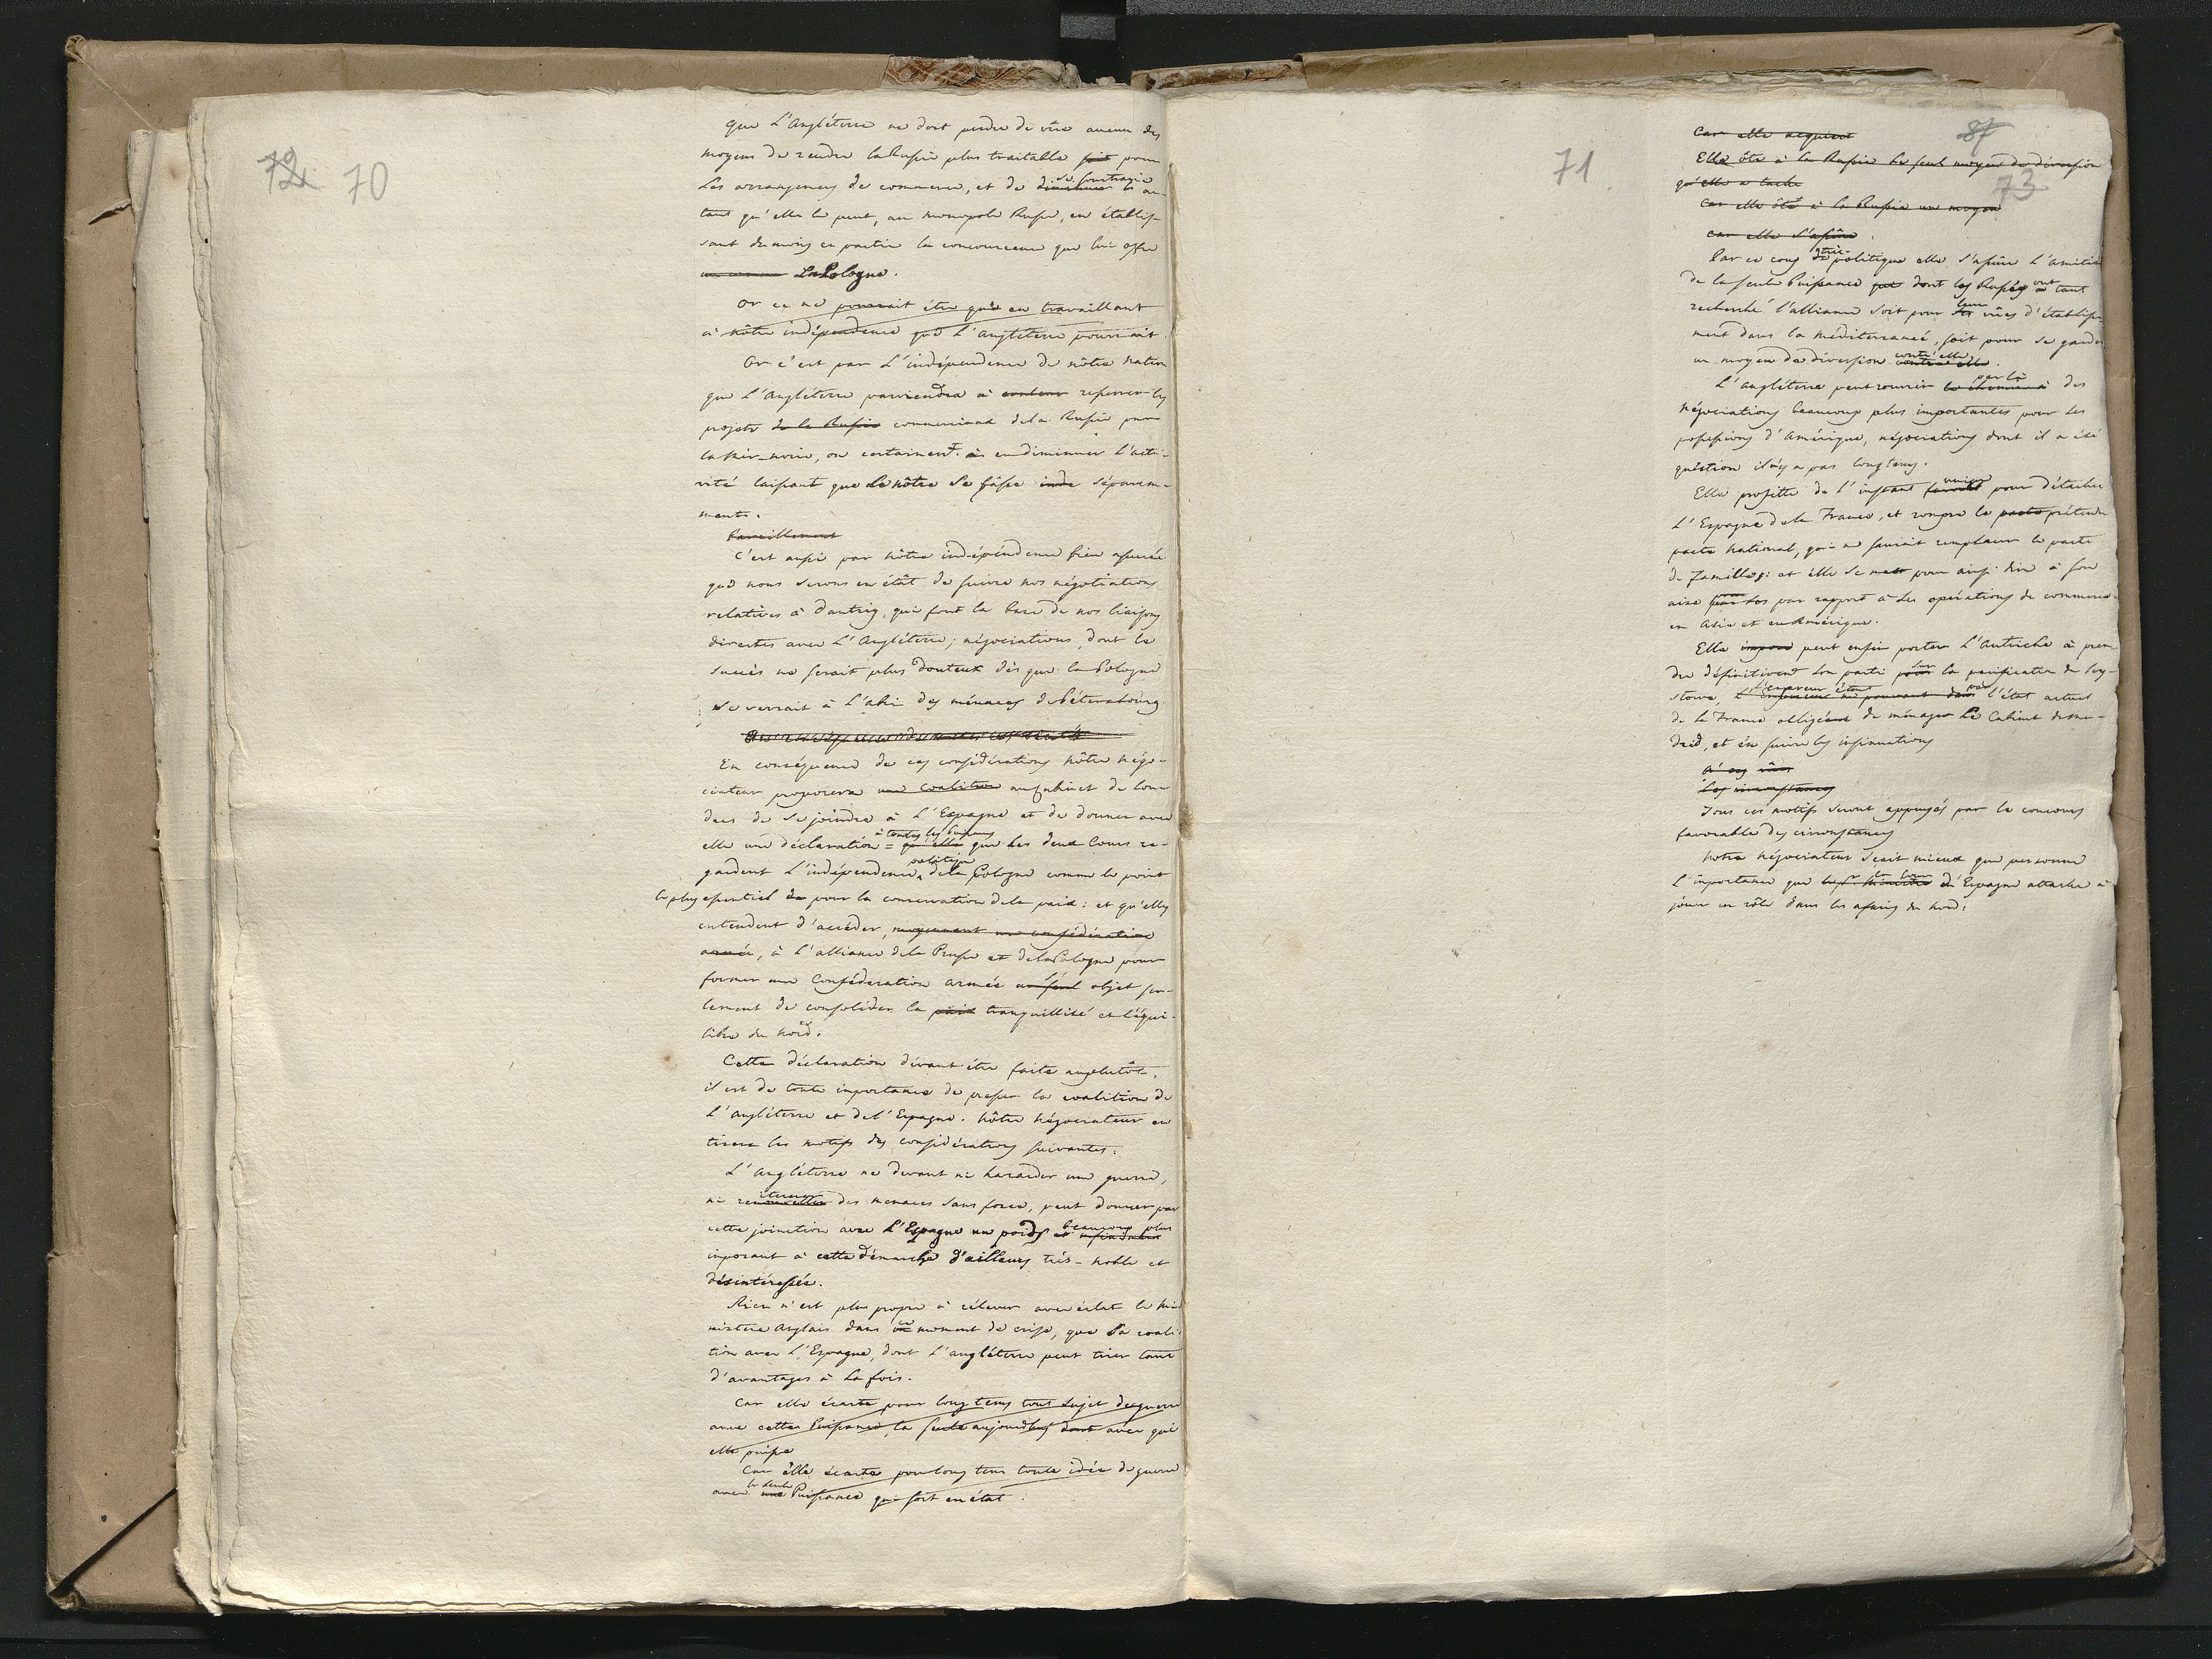 72 70
que L'Angléterre ne doit perdre de vûe aucun des
moyens de rendre la Russie plus traitable soit pour
Les arrangemens de commerce, et de diminuer se soustraire au-
tant qu'elle le peut, au monopole Russe, en établis-
sant du moins en partie la concurrence que lui offre
La Pologne.
Or ce ne pourrait être qu'en travaillant
à nôtre indépendence que L'Angléterre pourrait
Or c'est par L'indépendence de nôtre nation
que L'Angléterre parviendra à resserrer les
projets de la Russie commerciaux dela Russie pour
la Mer-noire, ou certainem.t à en diminuer L'acti-
vité laissant que La nôtre se fasse séparem-
ment.
Pareillement
C'est aussi par nôtre indépéndence bien assurée
que nous serons en état de suivre nos négotiations
relatives à Dantzig, qui font la base de nos liaisons
directes avec L'Angléterre; négociations, dont le
succès ne serait plus douteux dès que la Pologne
se verrait à L'abri des ménaces de Pétersbourg
En conséquence de ces considérations nôtre négo-
ciateur proposera une coalition au Cabinet de Lon-
dres de se joindre à L'Espagne et de donner avec
elle une déclaration = à toutes les Puissances qu'elle que les deux Cours re-
gardent L'indépendence politique dela Pologne comme le point
le plus essentiel de pour la conservation dela paix: et qu'elles
entendent d'accéder, moyennant une confédération
armée, à L'alliance dela Prusse et dela Pologne pour
former une Conféderation armée objet seu-
lement de consolider la paix tranquillité et l'équi-
libre du Nord.
Cette déclaration devant être faite au plutôt,
il est de toute importance de presser la coalition de
L'Angléterre et de l'Espagne. Nôtre Négociateur en
tirera les motifs des considérations suivantes.
L'Angléterre ne devant ni hazarder une guerre,
ni renouveller des menaces sans force, peut donner par
cette joinction avec L'Espagne un poids et beaucoup plus
imposant à cette démarche d'ailleurs très-noble et
désintéressée.
Rien n'est plus propre à rélever avec éclat le Mi-
nistere Anglais dans ce moment de crise, que sa coali-
tion avec L'Espagne, dont L'angléterre peut tirer tant
d'avantages à la fois.
Car elle écarte pour long tems tout sujet de guerre
avec cette Puissance, la seule aujourdhuy dont avec qui
elle puisse
Car elle écarte pour long tems toute idée de guerre
avec une la seule Puissance qui soit en état.
71
87
73
Car elle acquiert
Elle ôte à la Russie le seul moyen de diversion
qu'elle a taché
Car elle ôte à la Russie un moyen
Car elle s'assûre
Par ce coup de politique elle s'assûre L'amitié
de la seule Puissance que dont les Russes ont a tant
recherché l'alliance soit pour leur ses vûes d'établisse-
ment dans la Méditerranée, soit pour se garder
un moyen de diversion contr'elle contre elle.
L'angléterre peut rouvrir par là des
négociations beaucoup plus importantes pour ses
possessions d'Amérique, négociations dont il a été
quéstion il n'y a pas longtems.
Elle profitte de l'instant unique favorable pour détacher
L'Espagne dela France, et rompre le pacte prétendu
pacte national, qui ne saurait remplacer le pacte
de famille; et elle se met pour ainsi dire à son
aise par ses par rapport à ses opérations de commerce
en Asie et en Amérique.
Elle peut enfin porter L'Autriche à pren-
dre définitivem.t son parti pour sur la pacification de Szy-
stowe, L'Empereur étant par l'état actuel
de la France obligé de ménager Le Cabinet de Ma-
drid, et en suivre les insinuations
A' ces vûes
Les circonstances
Tous ces motifs seront appuyés par le concours
favorable des circonstances
Notre négociateur sçait mieux que personne
L'importance que la Cour d'Espagne attache à
jouer un rôle dans les affaires du Nord.